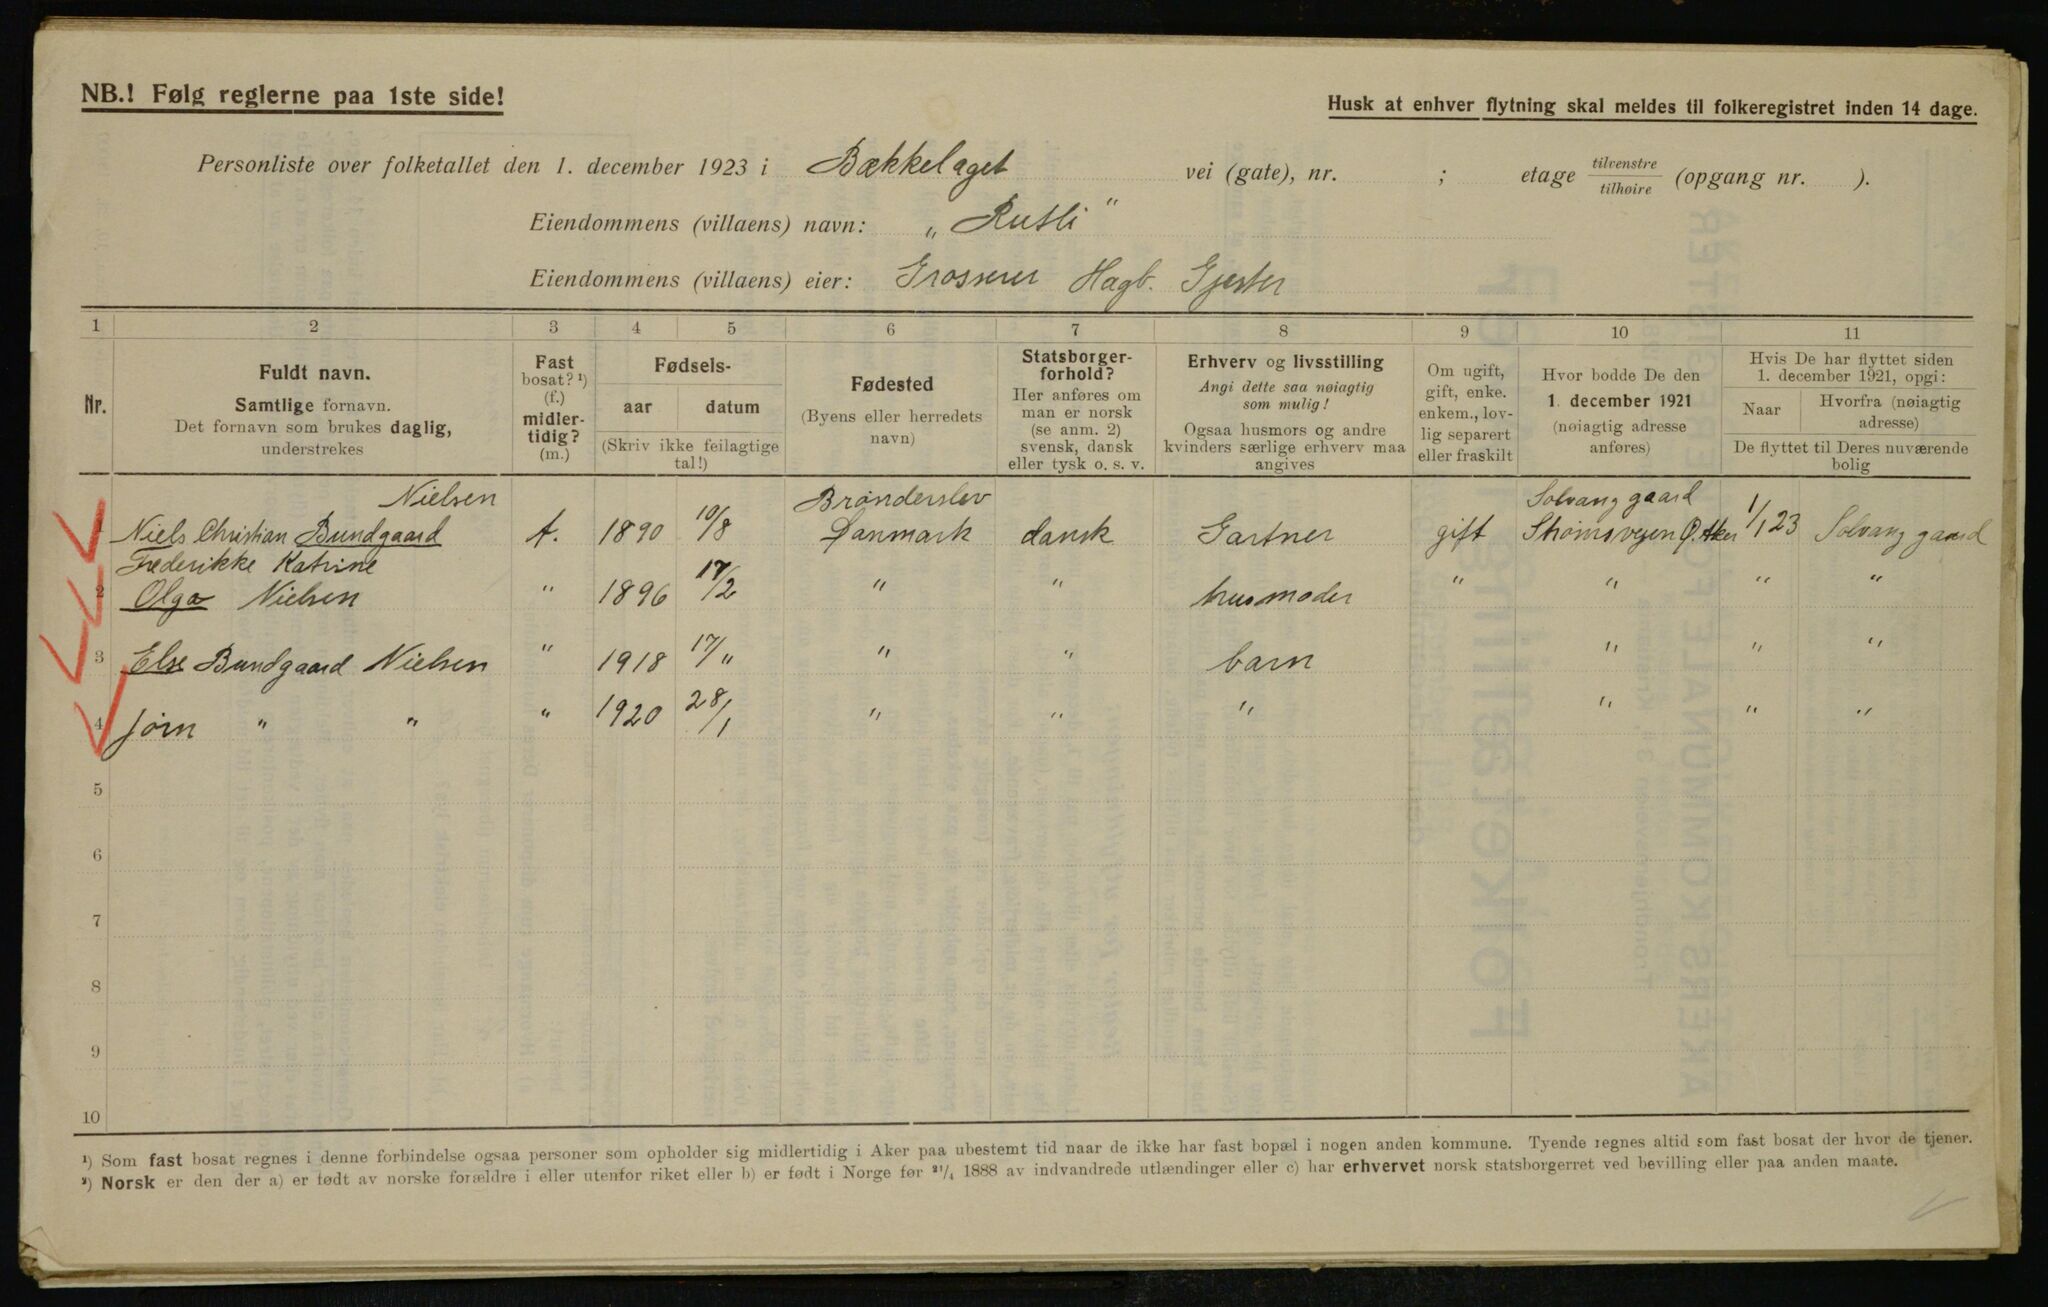 NB.! Følg reglerne paa 1ste side!
Husk at enhver flytning skal meldes til folkeregistret inden 14 dage.
Personliste over folketallet den 1. december 1923 i Bækkelaget vei (gate), nr. ; etage tilvenstre/tilhøire (opgang nr. ).
Eiendommens (villaens) navn: „Rusli”
Eiendommens (villaens) eier: Grosserer Hagb. Gjester
1 2 3 4 5 6 7 8 9 10 11
Nr.
Fuldt navn.
Samtlige fornavn.
Det fornavn som brukes daglig,
understrekes
Fast
bosat? ¹)
(f.)
midler-
tidig?
(m.)
Fødsels-
aar datum
(Skriv ikke feilagtige
tal!)
Fødested
(Byens eller herredets
navn)
Statsborger-
forhold?
Her anføres om
man er norsk
(se anm. 2)
svensk, dansk
eller tysk o. s. v.
Erhverv og livsstilling
Angi dette saa nøiagtig
som mulig!
Ogsaa husmors og andre
kvinders særlige erhverv maa
angives
Om ugift,
gift, enke.
enkem., lov-
lig separert
eller fraskilt
Hvor bodde De den
1. december 1921
(nøiagtig adresse
anføres)
Hvis De har flyttet siden
1. december 1921, opgi:
Naar
Hvorfra (nøiagtig
adresse)
De flyttet til Deres nuværende
bolig
Nielsen Brønderslev Solvang gaard
1 Niels Christian Bundgaard f. 1890 10/8 Danmark dansk Gartner gift Strømsvejen Ø. Aker 1/1 23 Solvang gaard
Frederikke Katrine
2 Olga Nielsen " 1896 17/2 " " husmoder " " " "
3 Else Bundgaard Nielsen " 1918 17/" " " barn " " "
4 Jørn " " " 1920 28/1 " " " " " "
5
6
7
8
9
10
¹) Som fast bosat regnes i denne forbindelse ogsaa personer som opholder sig midlertidig i Aker paa ubestemt tid naar de ikke har fast bopæl i nogen anden kommune. Tyende regnes altid som fast bosat der hvor de tjener.
²) Norsk er den der a) er født av norske forældre i eller utenfor riket eller b) er født i Norge før ²¹/₄ 1888 av indvandrede utlændinger eller c) har erhvervet norsk statsborgerret ved bevilling eller paa anden maate.